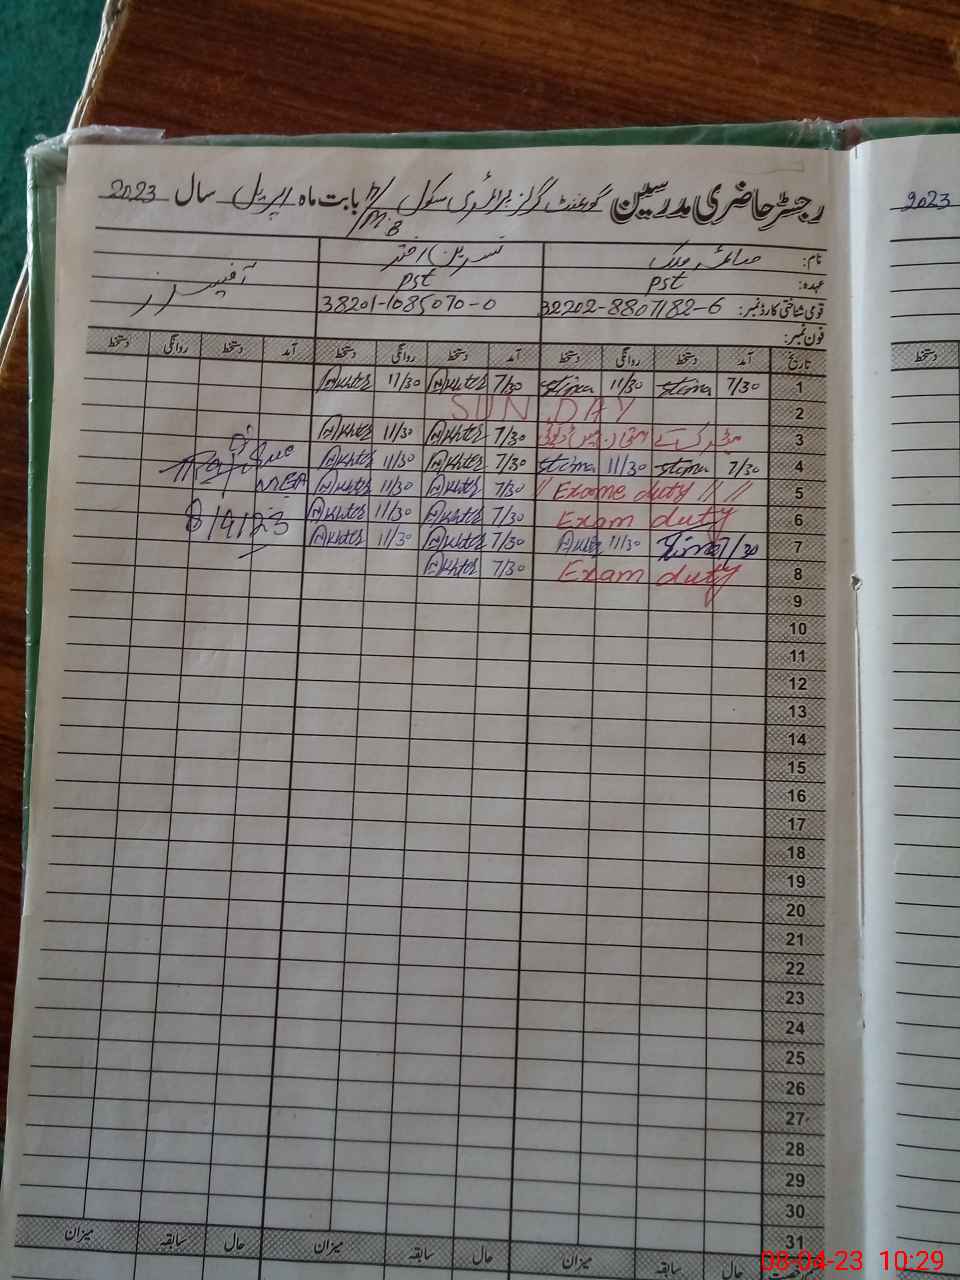 رجسٹر حاضری مدرسین گورنمنٹ گرلز پرائمری سکول بابت ماہ اپریل سال 2023
2023
نام: صائمہ ملک نسرین اختر آفیسرز
عہدہ: Pst Pst
قومی شناختی کارڈ نمبر: 32202-8807182-6 38201-1085070-0
فون نمبر:
تاریخ آمد دستخط روانگی دستخط آمد دستخط روانگی دستخط آمد دستخط روانگی دستخط
دستخط
1 7/30 11/30 7/30 Akhter 11/30 Akhter
2 SUN DAY
3 7/30 Akhter 11/30 Akhter
4 7/30 11/30 7/30 Akhter 11/30 Akhter
5 // Exame duty // // 7/30 Akhter 11/30 Akhter MEA
6 Exam duty 7/30 Akhter 11/30 Akhter 8/4/23
7 7/30 11/30 7/30 Akhter 11/30 Akhter
8 Exam duty 7/30 Akhter
9
10
11
12
13
14
15
16
17
18
19
20
21
22
23
24
25
26
27
28
29
30
31
حال سابقہ میزان حال سابقہ میزان حال سابقہ میزان
08-04-23 10:29